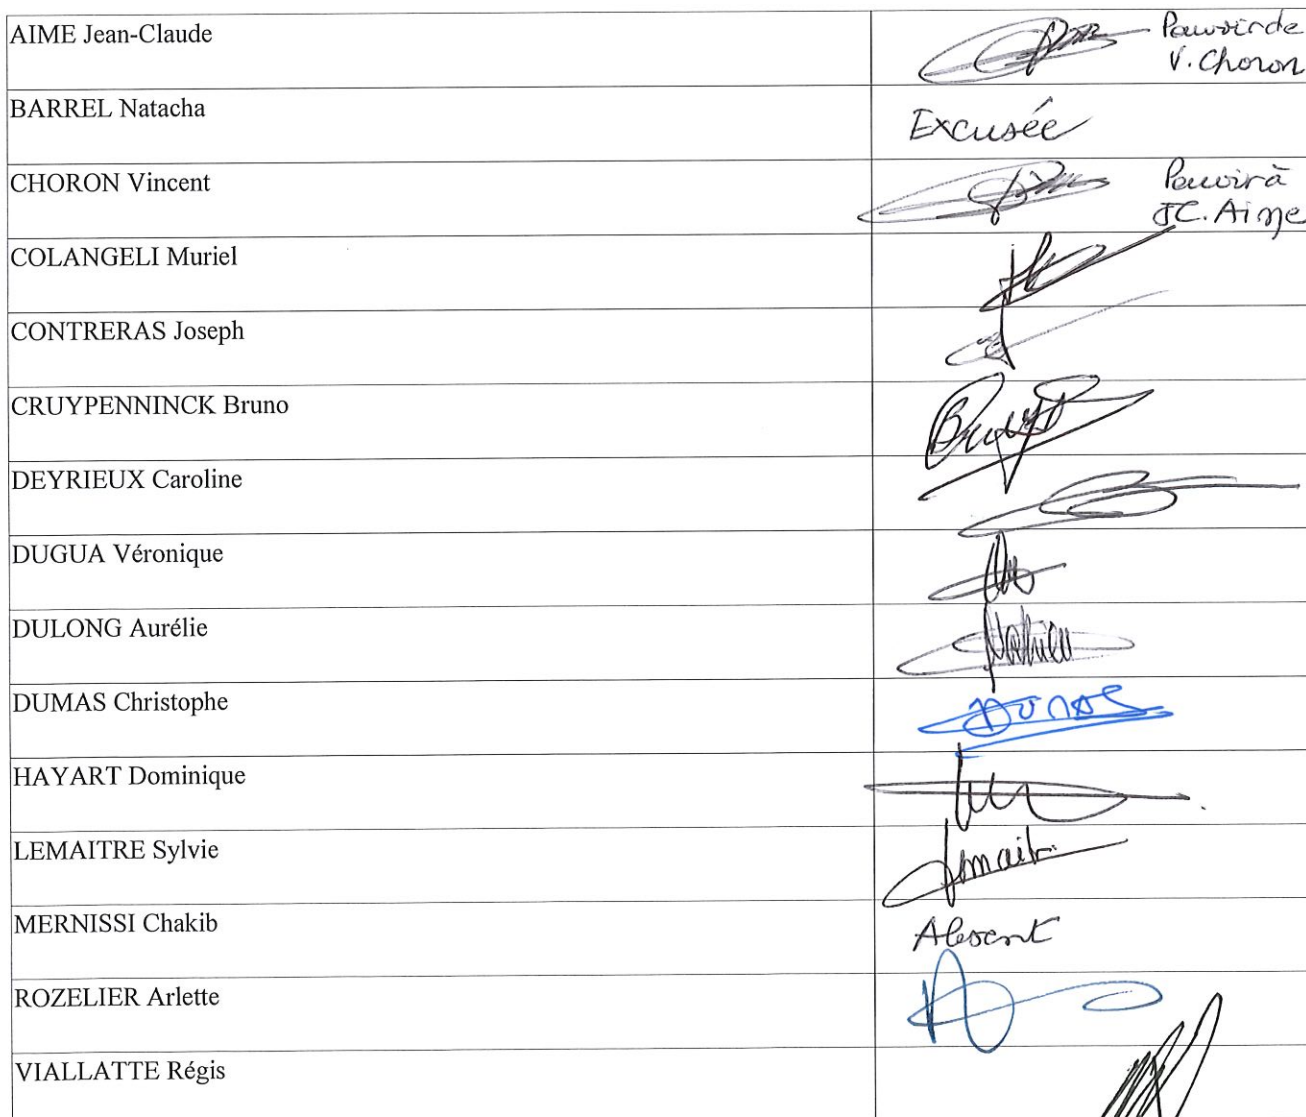 AIME Jean-Claude
Pouvoir de
V. Choron
BARREL Natacha
Excusée
CHORON Vincent
Pouvoir à
JC. Aime
COLANGELI Muriel
CONTRERAS Joseph
CRUYPENNINCK Bruno
DEYRIEUX Caroline
DUGUA Véronique
DULONG Aurélie
DUMAS Christophe
HAYART Dominique
LEMAITRE Sylvie
MERNISSI Chakib
Absent
ROZELIER Arlette
VIALLATTE Régis